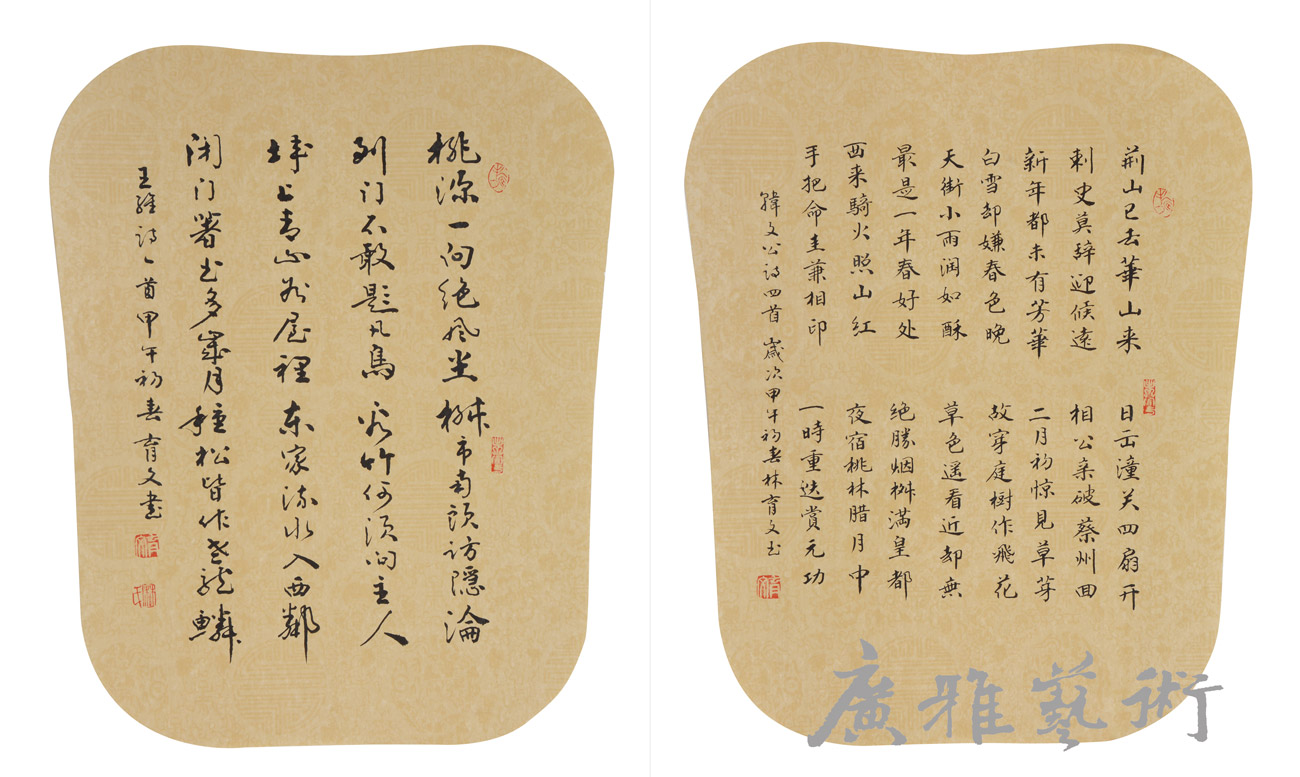 桃源一向绝风尘柳市南頭访隱淪
到门不敢题凡鳥看竹何须问主人
城上青山如屋裡东家流水入西鄰
闭门著书多歲月種松皆作老龍鱗
王維诗一首甲午初春育文书
荆山已去華山来日出潼关四扇开
刺史莫辞迎候遠相公亲破蔡州回
新年都未有芳華二月初惊见草芽
白雪却嫌春色晚故穿庭樹作飛花
天街小雨润如酥草色遥看近却無
最是一年春好处绝勝烟柳满皇都
西来騎火照山红夜宿桃林腊月中
手把命圭兼相印一時重迭赏元功
韓文公诗四首歲次甲午初春林育文书
廣雅藝術